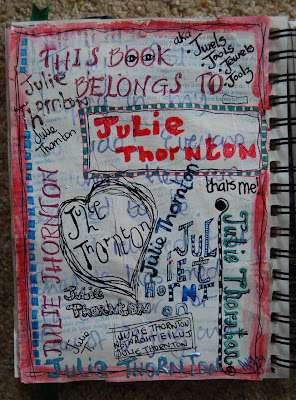 THIS BOOK
BELONGS TO:
aka
Jwels
Jools
Jewels
Joolz
Julie
Thornton
Julie
Thornton
JuLie
ThorNTON
thats me!
JULIE THORNTON
Julie
Thornton
Julie Thornton
JULIE
THORNTON
Julie Thornton
Julie
Thornton
Julie
JULIE THORNTON
NOTNROHT EILUJ
JULIE THORNTON
JULIE THORNTON